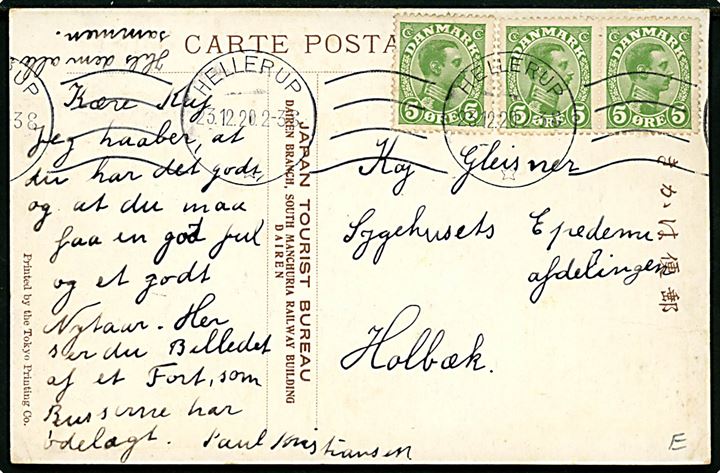 CARTE POSTA
Hils dem alle
sammen.
HELLERUP
23.12.20. 2-3
HELLERUP
12.20
UP
38
DANMARK
5 ØRE 5
DANMARK
5 ØRE 5
DANMARK
5 ØRE 5
Kære Kaj
Jeg haaber, at
du har det godt
og at du maa
faa en god jul
og et godt
Nytaar. Her
ser du Billedet
af et Fort, som
Russerne har
ødelagt. Paul Kristiansen
JAPAN TOURIST BUREAU
DAIREN BRANCH, SOUTH MANCHURIA RAILWAY BUILDING
DAIREN
Kaj Gleisner
Sygehusets Epedemi
afdelingen
Holbæk.
きかは便郵
Printed by the Tokyo Printing Co.
E